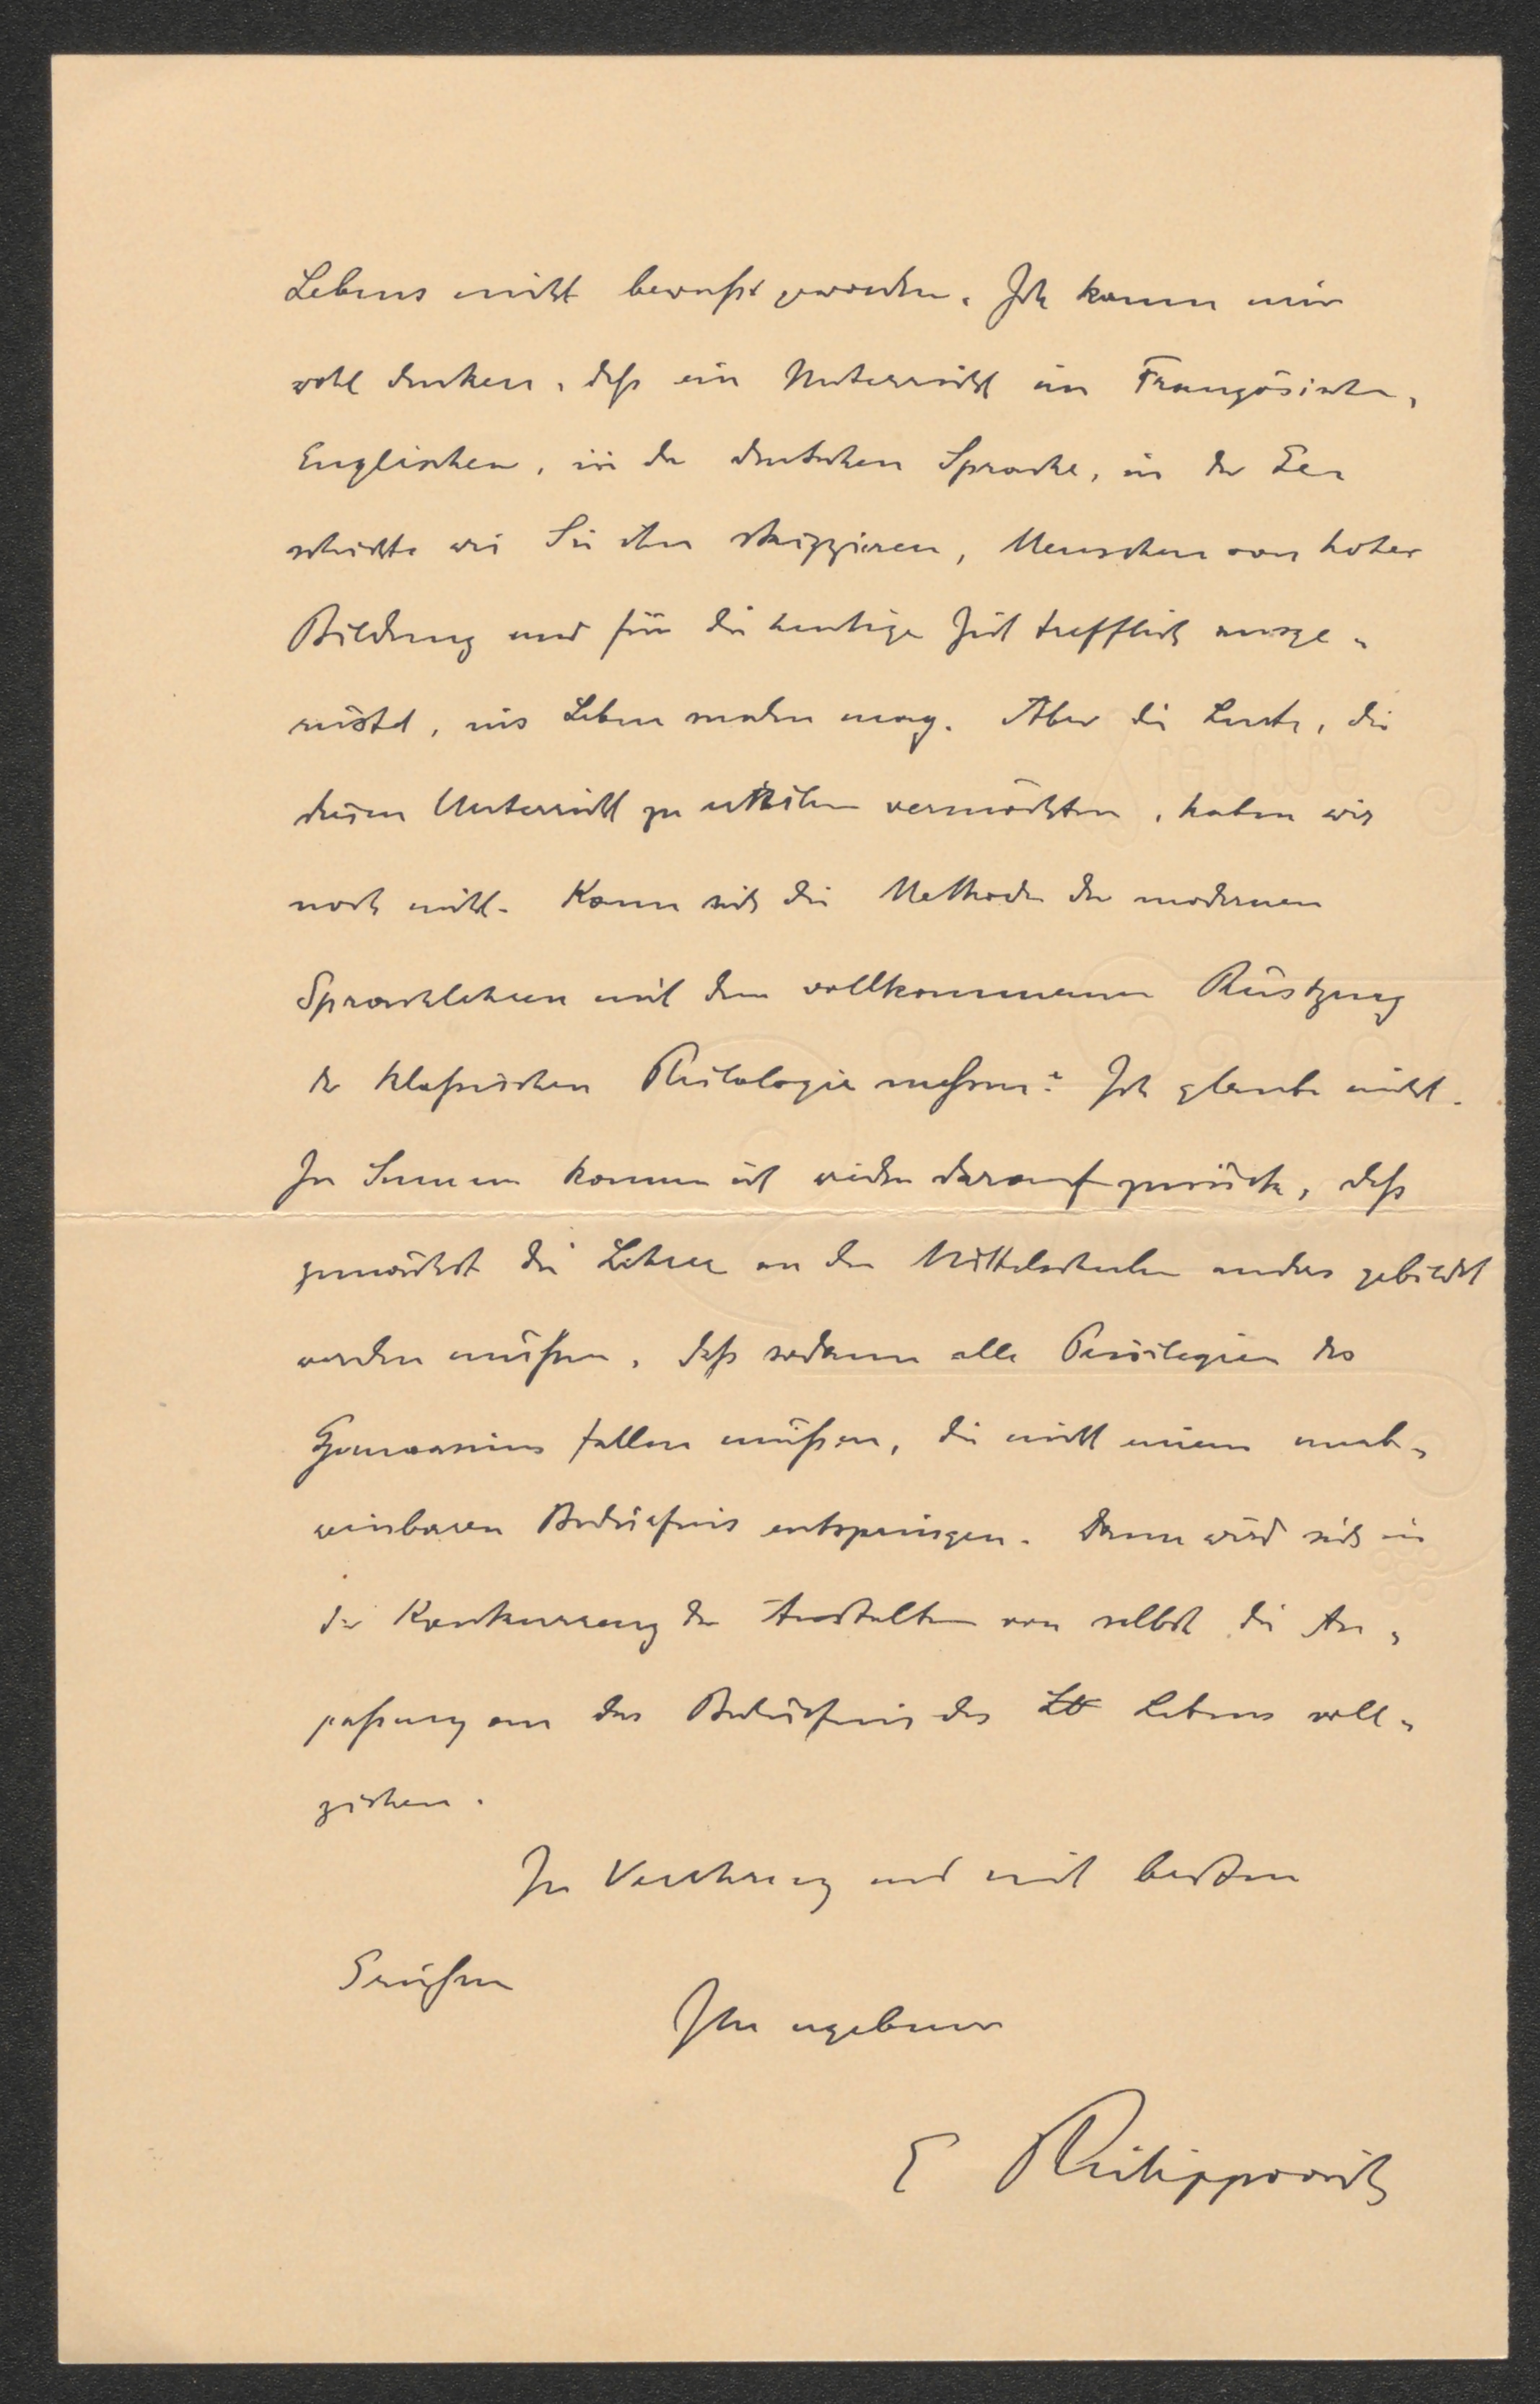 Lebens nicht bewußt geworden. Ich kann mir
wohl denken, daß ein Unterricht im Französischen,
Englischen, in der deutschen Sprache, in der Ge-
schichte wie Sie ihn skizzieren, Menschen von hoher
Bildung und für die heutige Zeit trefflich ausge-
rüstet, ins Leben senden mag. Aber die Leute, die
diesen Unterricht zu erteilen vermöchten, haben wir
noch nicht. Kann sich die Methode der modernen
Sprachlehren mit dem vollkommenen Rüstzeug
der klassischen Philologie messen? Ich glaube nicht.
In Summa komme ich wieder darauf zurück, daß
zunächst die Lehrer an den Mittelschulen anders gebildet
werden müßen, daß sodann alle Privilegien des
Gymnasiums fallen müßen, die nicht einem unab-
weisbaren Bedürfnis entspringen. Dann wird sich in
der Konkurrenz der Anstalten von selbst die An-
paßung an das Bedürfnis des Lebens voll-
ziehen.
In Verehrung und mit besten
Grüßen
Ihr ergebener
E Philippovich